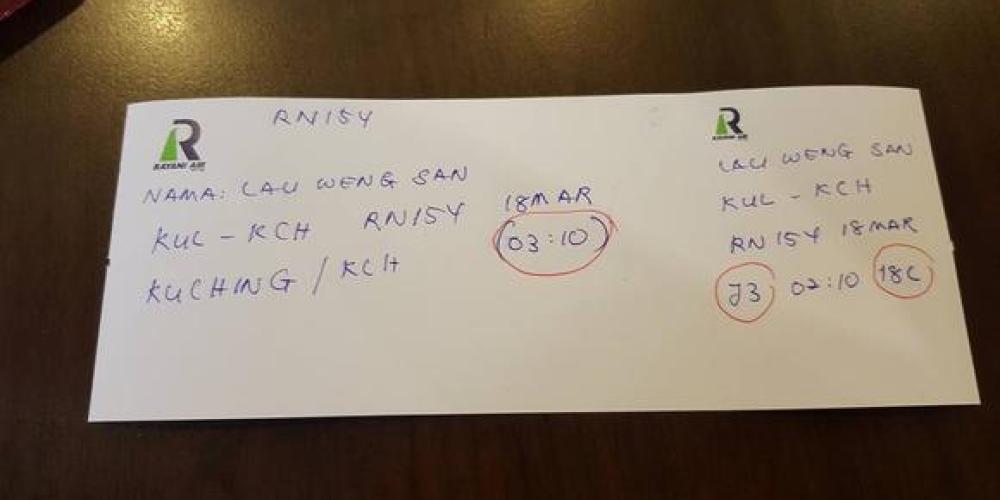 RN15Y
RAYANI AIR
NAMA: LAU WENG SAN
KUL - KCH RN15Y 18MAR
03:10
KUCHING / KCH
RAYANI AIR
LAU WENG SAN
KUL - KCH
RN 15Y 18MAR
J3 02:10 18C